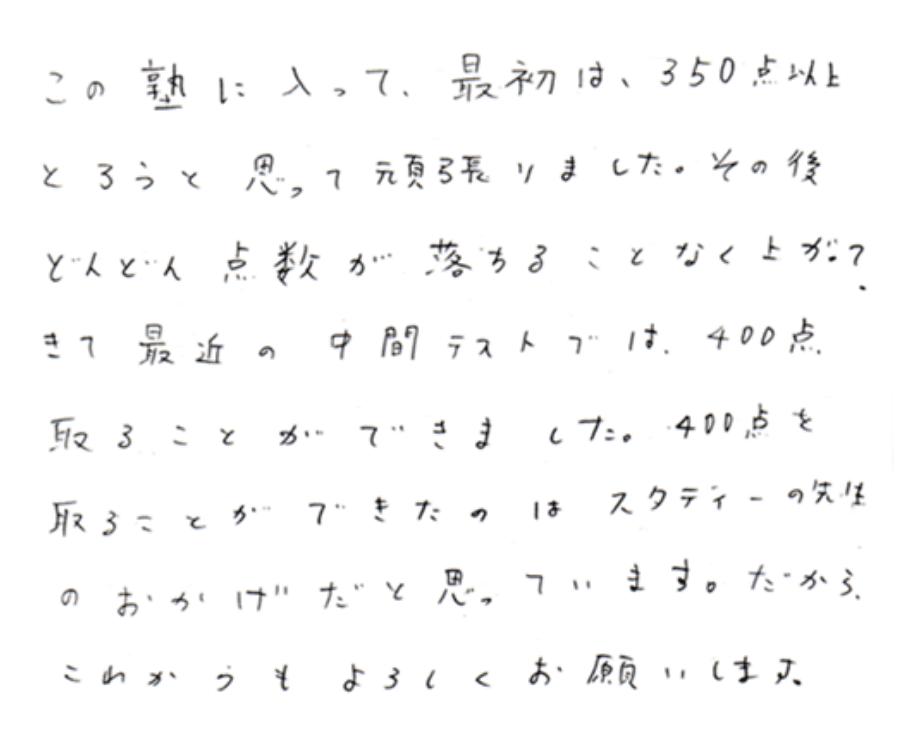 この塾に入って、最初は、350点以上
とろうと思って頑張りました。その後
どんどん点数が落ちることなく上がっ
きて最近の中間テストでは、400点
取ることができました。400点を
取ることができたのはスタディーの先生
のおかげだと思っています。だから、
これからもよろしくお願いします。